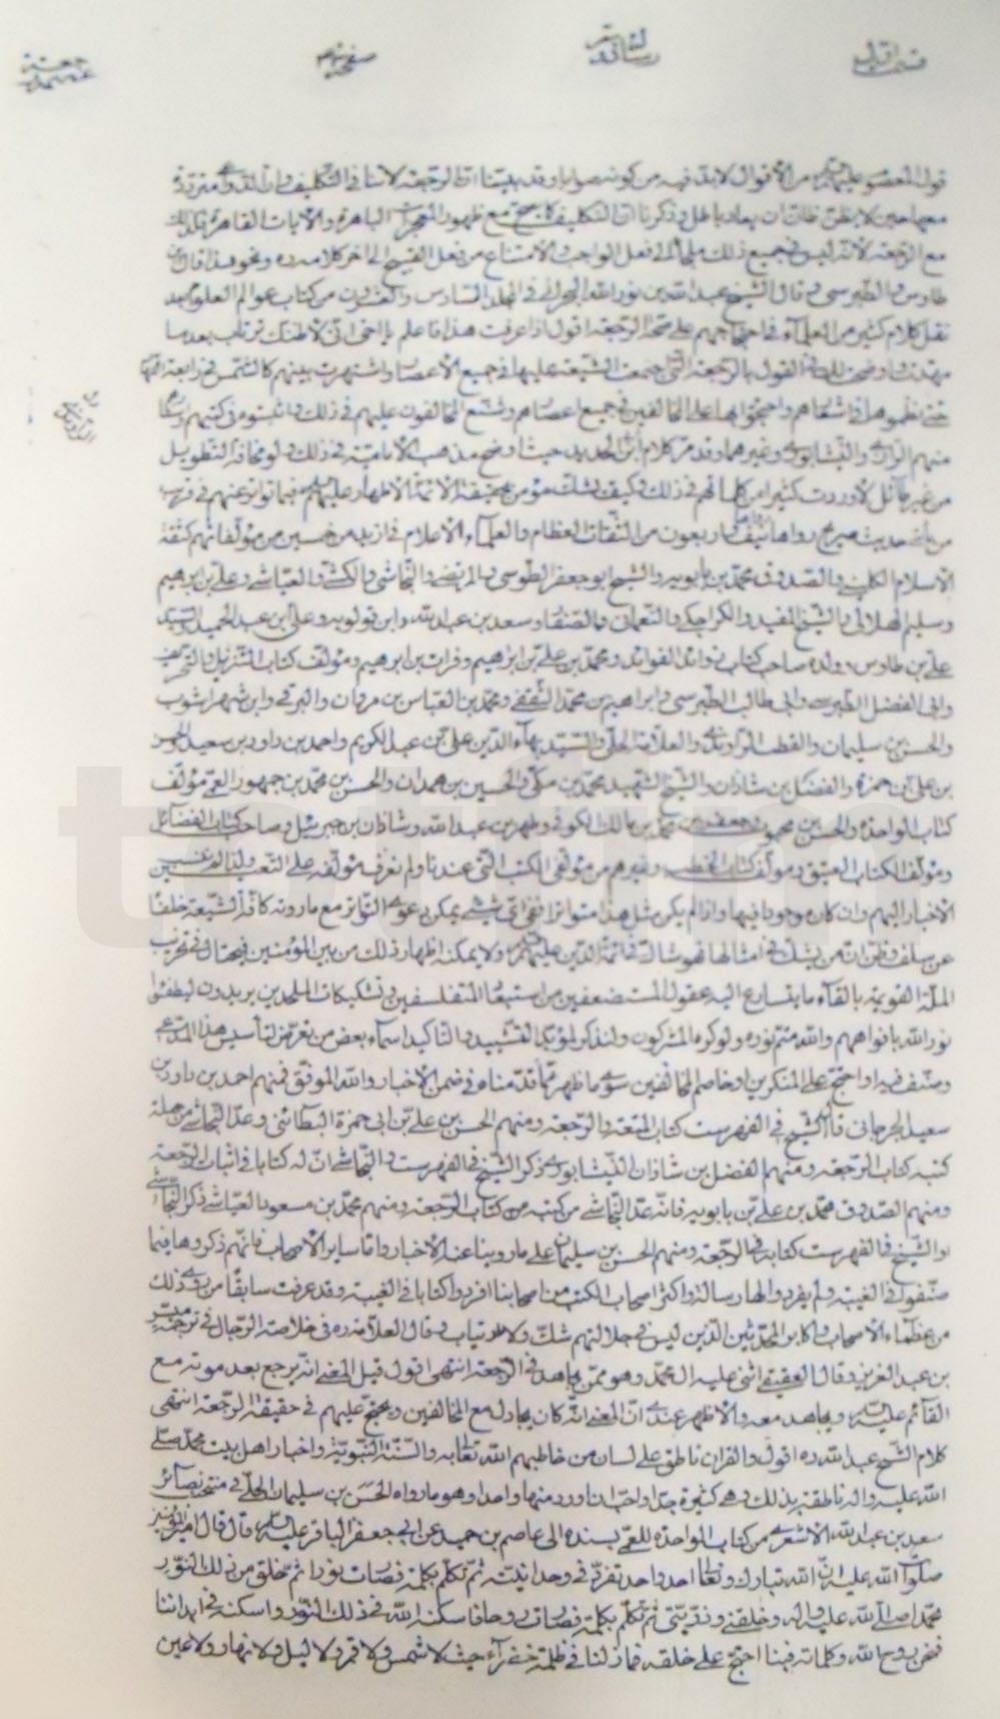 قول المعصوم عليه السلام من الأقوال لابد فيه من كونه صوابا وقد بينا ان الرجعة لا تنافى التكليف وان الدواعى مترددة
معها حين لا يظن ظان ان يعاد باطل وذكرنا ان التكليف كما يصح مع ظهور المعجزات الباهرة والآيات القاهرة فكذلك
مع الرجعة لانه ليس فى جميع ذلك ملجأ الى فعل الواجب والامتناع من فعل القبيح الى اخر كلامه ره ونحو هذا قال ابن
طاوس والطبرسى وقال الشيخ عبد الله بن نور الله البحرانى فى المجلد السادس والعشرون من كتاب عوالم العلوم بعد
نقل كلام كثير من العلماء فى احتجاجهم على صحة الرجعة اقول اذا عرفت هذا فاعلم يا اخى انى لا اظنك ترتاب بعد ما
مهدت واوضحت لك فى القول بالرجعة التى اجمعت الشيعة عليها فى جميع الاعصار واشتهرت بينهم كالشمس فى رابعة النهار
حتى نظموها فى اشعارهم واحتجوا بها على المخالفين فى جميع اعصارهم وشنع المخالفون عليهم فى ذلك واثبتوه فى كتبهم
منهم الرازى والنيشابورى وغيرهما وقد مر كلام ابن ابى الحديد حيث اوضح مذهب الامامية فى ذلك ولو مخافة التطويل
من غير طائل لاوردت كثيرا من كلماتهم فى ذلك وكيف يشك مؤمن بحقية الائمة الاطهار عليهم السلام فيما تواتر عنهم فى قريب
من مأتى حديث صريح رواها نيف واربعون من الثقات العظام والعلماء الاعلام فى ازيد من خمسين من مؤلفاتهم كثقة
الاسلام الكلينى والصدوق محمد بن بابويه والشيخ ابو جعفر الطوسى والمرتضى والنجاشى والكشى والعياشى وعلى بن ابرهيم
وسليم الهلالى والشيخ المفيد والكراجكى والنعمانى والصفار وسعد بن عبد الله وابن قولويه وعلى ابن عبد الحميد والسيد
على بن طاوس وولده صاحب كتاب زوائد الفوائد ومحمد بن على بن ابراهيم وفرات بن ابرهيم ومؤلف كتاب التنزيل والتحريف
وابى الفضل الطبرسى وابى طالب الطبرسى وابراهيم بن محمد الثقفى ومحمد بن العباس بن مروان والبرقى وابن شهراشوب
والحسن بن سليمان والقطب الراوندى والعلامة الحلى والسيد بهاء الدين على بن عبد الكريم واحمد بن داود بن سعيد والحسن
بن على بن حمزة والفضل بن شاذان والشيخ الشهيد محمد بن مكى والحسين بن حمدان والحسن بن محمد بن جمهور العمى مؤلف
كتاب الواحدة والحسن بن محبوب وجعفر بن محمد بن مالك الكوفى وطهر بن عبد الله وشاذان بن جبرئيل وصاحب كتاب الفضائل
ومؤلف الكتاب العتيق ومؤلف كتاب الخطب وغيرهم من مؤلفى الكتب التى عندنا ولم نعرف مؤلفه على التعيين
الاخبار اليهم وان كان موجودا فيها واذا لم يكن مثل هذا متواترا ففى اى شىء يمكن دعوى التواتر مع ما روته كافة الشيعة خلفا
عن سلف وظنى ان من يشك فى امثالها فهو شاك فى ائمة الدين عليهم السلام ولا يمكنه اظهار ذلك من بين المؤمنين فيحتال فى تخريب
الملة القويمة بالقاء ما يتسارع اليه عقول المستضعفين من استبعاد المتفلسفين وتشكيكات الملحدين يريدون ليطفئوا
نور الله بافواههم والله متم نوره ولو كره المشركون ولنذكر لمزيد التشييد والتاكيد اسماء بعض من تعرض لتأسيس هذا المدعى
وصنف فيه او احتج على المنكرين او خاصم المخالفين سوى ما ظهر مما قدمناه فى ضمن الاخبار والله الموفق فمنهم احمد بن داود بن
سعيد الجرجانى قال الشيخ فى الفهرست كتاب المتعة والرجعة ومنهم الحسن بن على بن ابى حمزة البطائنى وعد النجاشى من جملة
كتبه كتاب الرجعة ومنهم الفضل بن شاذان النيشابورى ذكر الشيخ فى الفهرست والنجاشى ان له كتابا فى اثبات الرجعة
ومنهم الصدوق محمد بن على بن بابويه فانه عد النجاشى من كتبه كتاب الرجعة ومنهم محمد بن مسعود العياشى ذكر النجاشى
والشيخ فى الفهرست كتابه فى الرجعة ومنهم الحسن بن سليمان على ما روينا عنه الاخبار واما ساير الاصحاب فانهم ذكروها فيما
صنفوا فى الغيبة ولم يفردوا لها رسالة واكثر اصحاب الكتب من اصحابنا افردوا كتابا فى الغيبة وقد عرفت سابقا من روى ذلك
من عظماء الاصحاب واكابر المحدثين الذين ليس فى جلالتهم شك ولا ارتياب وقال العلامة ره فى خلاصة الرجال فى ترجمة ميسر
بن عبد العزيز وقال العقيقى اثنى عليه ال محمد وهو ممن يجاهد فى الرجعة انتهى اقول قيل المعنى انه يرجع بعد موته مع
القائم عليه السلام ويجاهد معه والاظهر عندى ان المعنى انه كان يجادل مع المخالفين ويحتج عليهم فى حقية الرجعة انتهى
كلام الشيخ عبد الله ره اقول والقران ناطق على لسان من خاطبهم الله تعالى به والسنة النبوية واخبار اهل بيت محمد صلى
الله عليه واله ناطقة بذلك وهى كثيرة جدا واحب ان اورد منها واحدا وهو ما رواه الحسن بن سليمان الحلى فى منتخب بصائر
سعد بن عبد الله الاشعرى من كتاب الواحدة للعمى بسنده الى عاصم بن حميد عن ابى جعفر الباقر عليه السلام قال قال امير المؤمنين
صلوات الله عليه ان الله تبارك وتعالى احد واحد تفرد فى وحدانيته ثم تكلم بكلمة فصارت نورا ثم خلق من ذلك النور
محمدا صلى الله عليه واله وخلقنى وذريتى ثم تكلم بكلمة فصارت روحا فاسكنه الله فى ذلك النور واسكنه فى ابداننا
فنحن روح الله وكلماته فبنا احتج على خلقه فما زلنا فى ظلة خضراء حيث لا شمس ولا قمر ولا ليل ولا نهار ولا عين